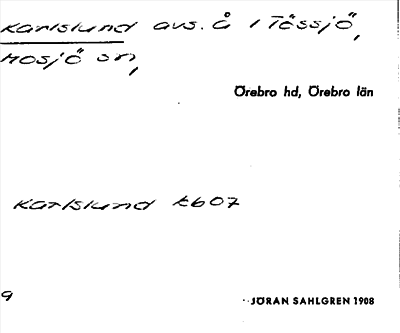 Karlslund avs. å i Tössjö,
Mosjö sn,
Örebro hd, Örebro län
Karlslund tb07
9
JÖRAN SAHLGREN 1908